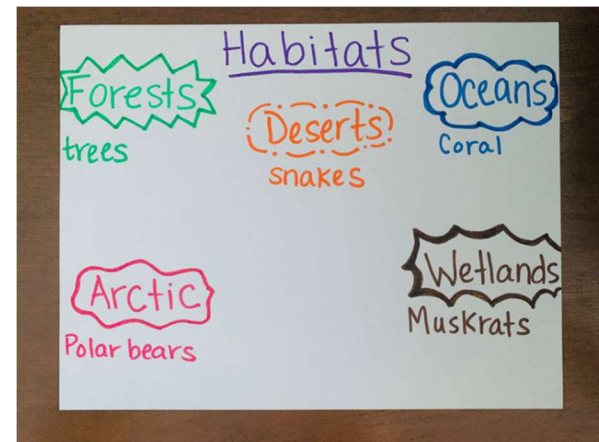 Habitats
Forests
trees
Deserts
snakes
Oceans
Coral
Arctic
Polar bears
Wetlands
Muskrats